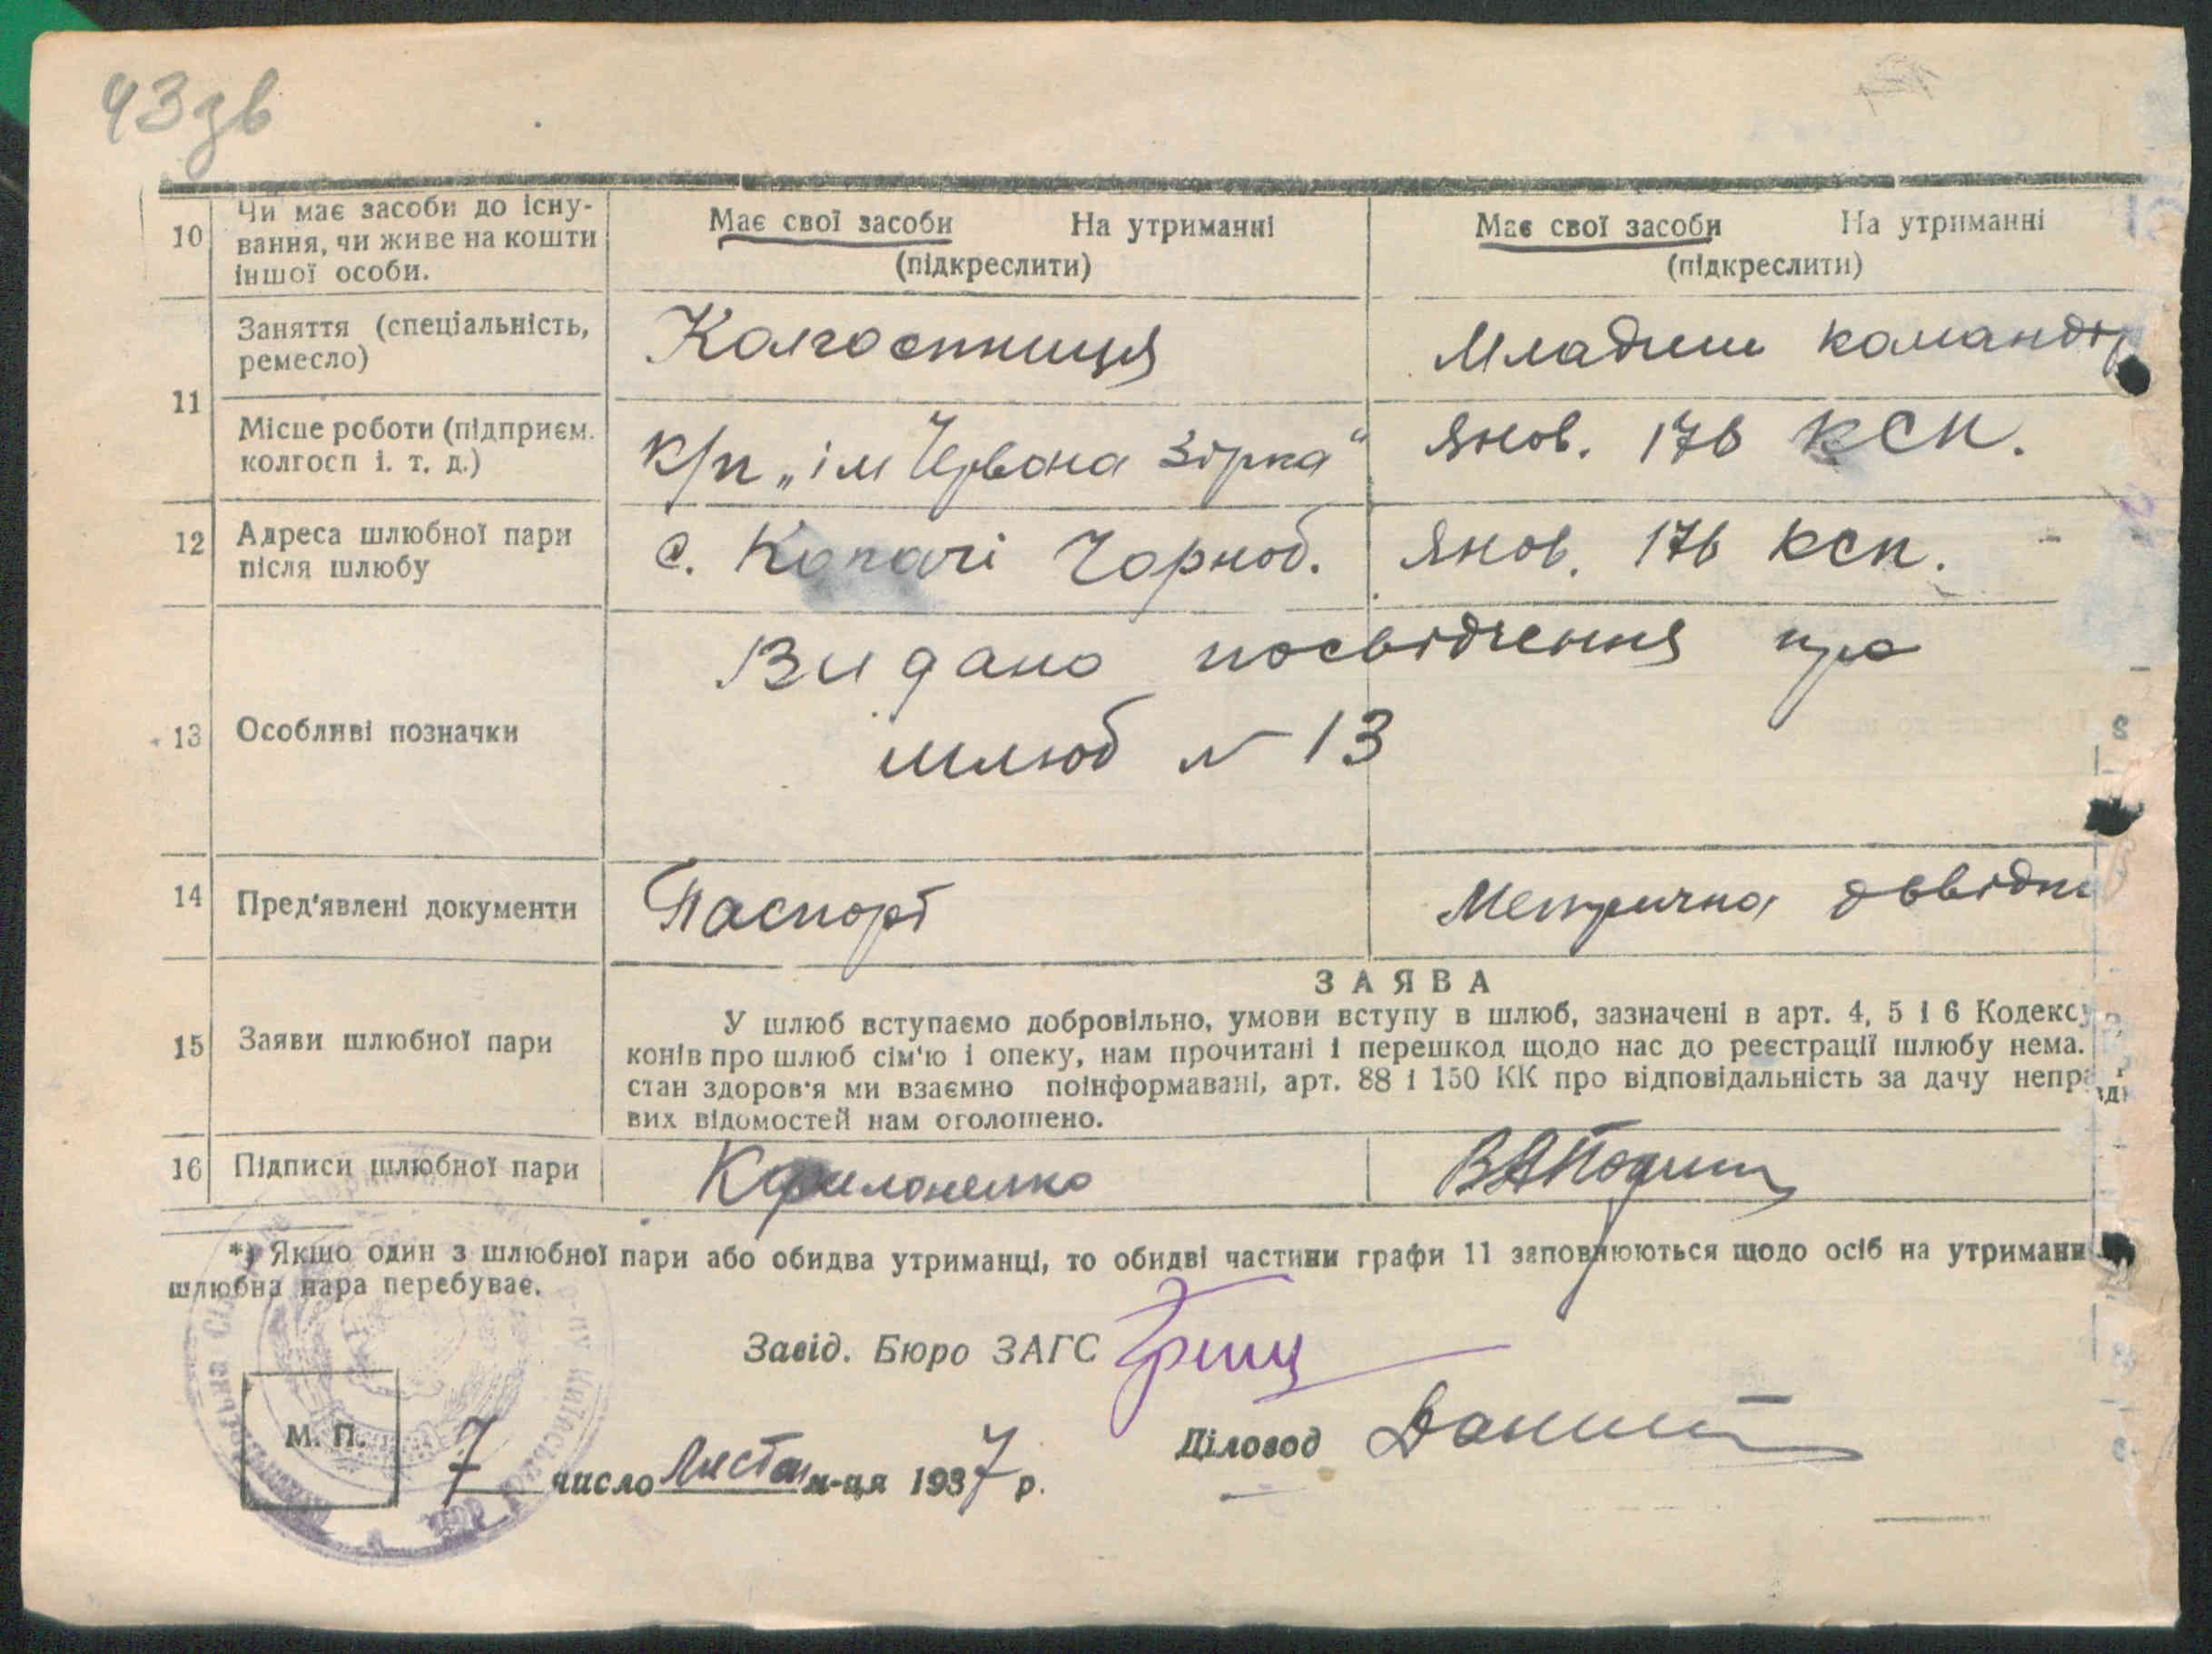 43зв
10 Чи має засоби до існу-
вання, чи живе на кошти
іншої особи.
Має свої засоби На утриманні
(підкреслити)
Має свої засоби На утриманні
(підкреслити)
11
Заняття (спеціальність,
ремесло)
Колгоспниця
Младший командір
Місце роботи (підприєм.
колгосп і. т. д.)
к/п „ім Червона Зірка“
Янов. 176 кСп.
12 Адреса шлюбної пари
після шлюбу
с. Копачі Чорноб.
Янов. 176 ксп.
13 Особливі позначки
Видано посвідчення про
шлюб № 13
14 Пред'явлені документи
Паспорт
Метрична
15 Заяви шлюбної пари
ЗАЯВА
У шлюб вступаємо добровільно, умови вступу в шлюб, зазначені в арт. 4, 5 і 6 Кодексу
конів про шлюб сім'ю і опеку, нам прочитані і перешкод щодо нас до реєстрації шлюбу нема.
стан здоров'я ми взаємно поінформавані, арт. 88 і 150 КК про відповідальність за дачу неправди
вих відомостей нам оголошено.
16 Підписи шлюбної пари
*) Якщо один з шлюбної пари або обидва утриманці, то обидві частини графи 11 заповнюються щодо осіб на утриманні
шлюбна пара перебуває.
Завід. Бюро ЗАГС
М. П.
7 число Листоп м-ця 1937 р.
Діловод